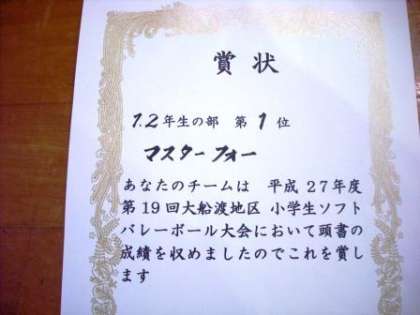 賞状
1.2年生の部 第1位
マスターフォー
あなたのチームは 平成27年度
第19回大船渡地区 小学生ソフト
バレーボール大会において頭書の
成績を収めましたのでこれを賞し
ます